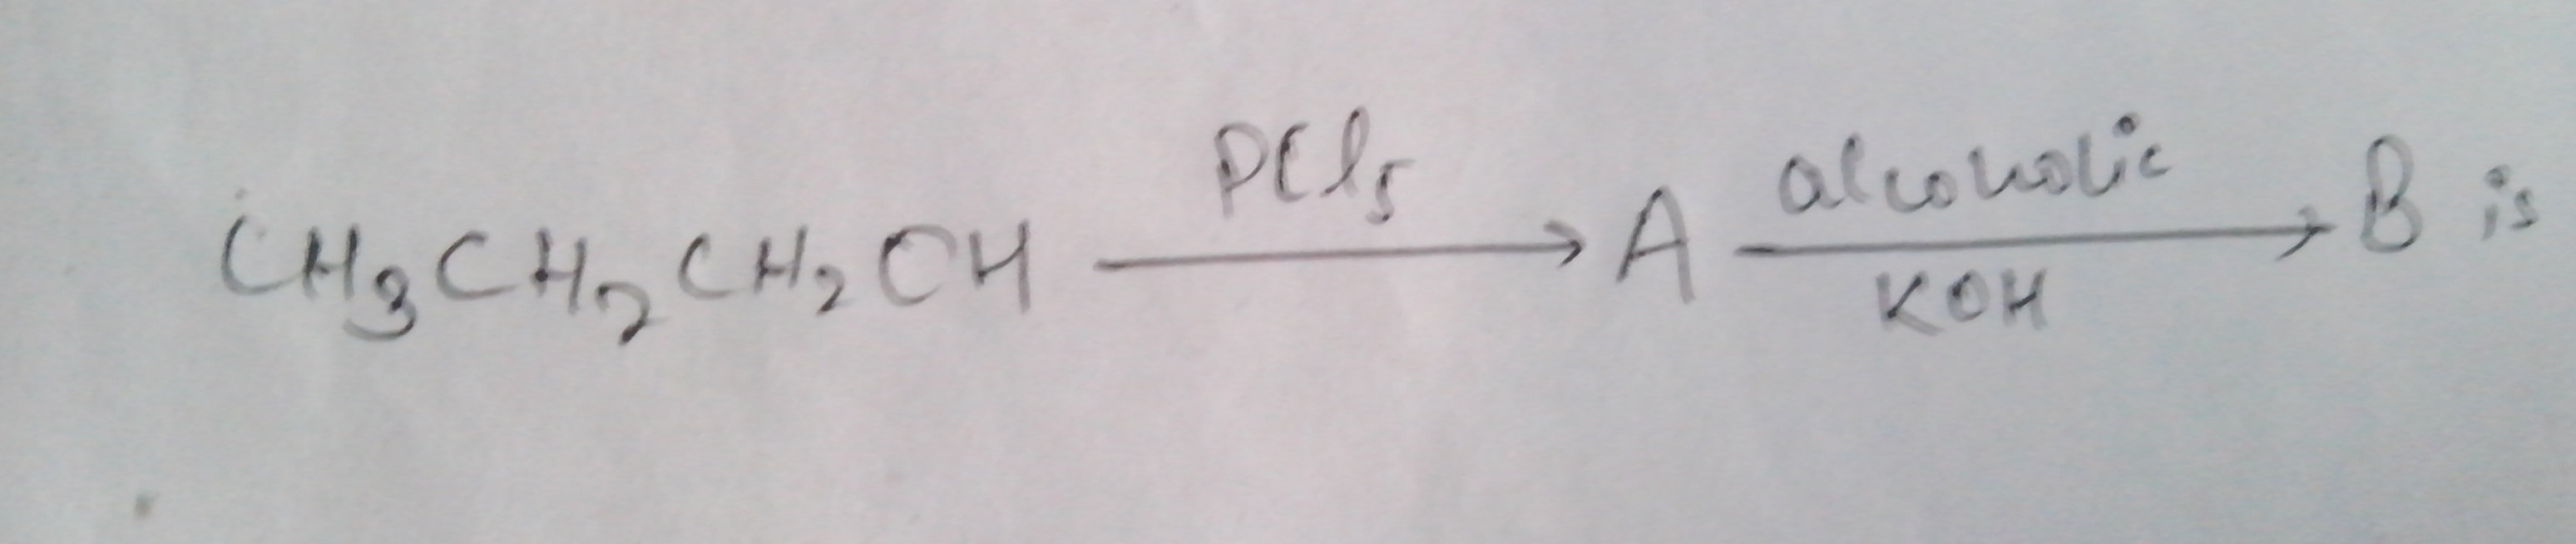 CH3CH2CH2OH PCl5 → A alcoholic KOH → B is